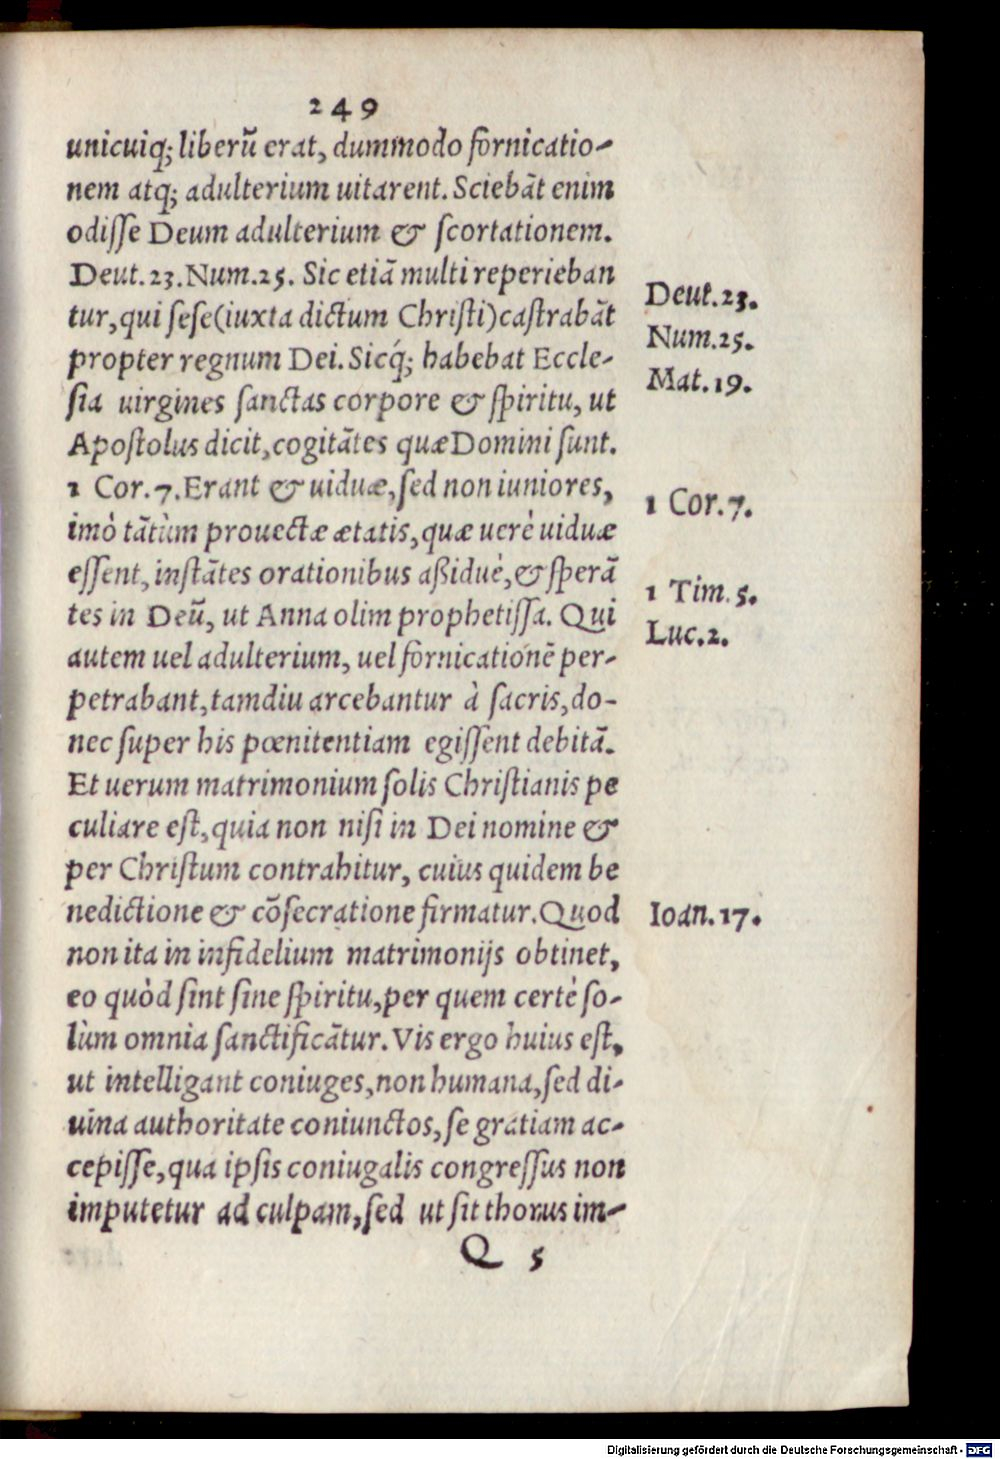 249
unicuiq́; liberũ erat, dummodo fornicatio-
nem atq; adulterium uitarent. Sciebãt enim
odiſſe Deum adulterium & ſcortationem.
Deut. 23. Num. 25. Sic etiã multi reperieban
tur, qui ſeſe (iuxta dictum Chriſti) caſtrabãt
propter regnum Dei. Sicq́; habebat Eccle-
ſia uirgines ſanctas corpore & ſpiritu, ut
Apoſtolus dicit, cogitãtes quæ Domini ſunt.
1 Cor. 7. Erant & uiduæ, ſed non iuniores,
imò tãtùm prouectæ ætatis, quæ uerè uiduæ
eſſent, inſtãtes orationibus aßiduè, & ſperã
tes in Deũ, ut Anna olim prophetiſſa. Qui
autem uel adulterium, uel fornicationẽ per-
petrabant, tamdiu arcebantur à ſacris, do-
nec ſuper his pœnitentiam egiſſent debitã.
Et uerum matrimonium ſolis Chriſtianis pe
culiare eſt, quia non niſi in Dei nomine &
per Chriſtum contrahitur, cuius quidem be
nedictione & cõſecratione firmatur. Quod
non ita in infidelium matrimonijs obtinet,
eo quòd ſint ſine ſpiritu, per quem certè ſo-
lùm omnia ſanctificãtur. Vis ergo huius eſt,
ut intelligant coniuges, non humana, ſed di-
uina authoritate coniunctos, ſe gratiam ac-
cepiſſe, qua ipſis coniugalis congreſſus non
imputetur ad culpam, ſed ut ſit thorus im-
Q 5
Deut. 23.
Num. 25.
Mat. 19.
1 Cor. 7.
1 Tim. 5.
Luc. 2.
Ioan. 17.
Digitalisierung gefördert durch die Deutsche Forschungsgemeinschaft - DFG